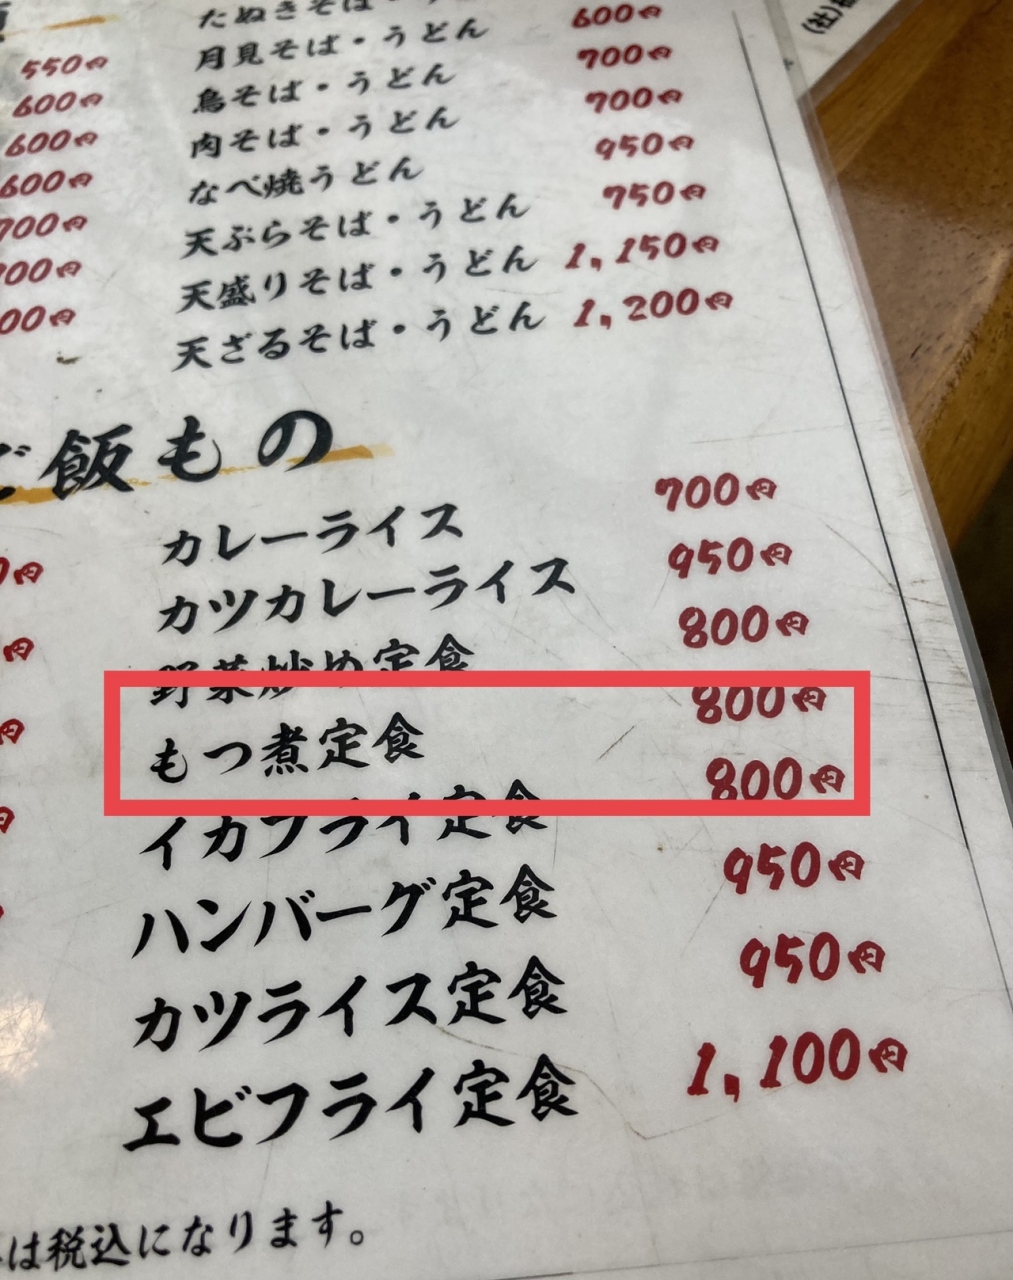 550円
600円
600円
600円
700円
たぬきそば・うどん
月見そば・うどん 600円
鳥そば・うどん 700円
肉そば・うどん 700円
なべ焼うどん 950円
天ぷらそば・うどん 750円
天盛りそば・うどん 1,150円
天ざるそば・うどん 1,200円
ご飯もの
カレーライス 700円
カツカレーライス 950円
野菜炒め定食 800円
もつ煮定食 800円
イカフライ定食 800円
ハンバーグ定食 950円
カツライス定食 950円
エビフライ定食 1,100円
は税込になります。